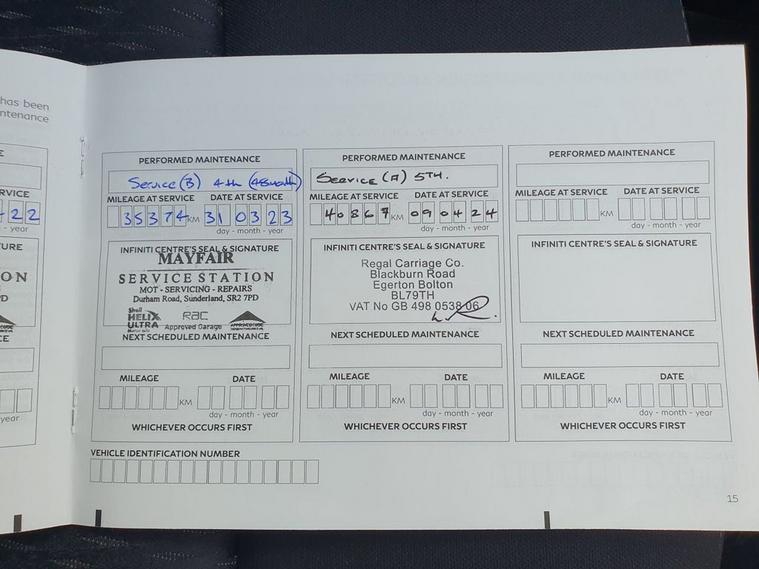 has been
ntenance
E
RVICE
22
- year
URE
ON
PD
CE
year
PERFORMED MAINTENANCE
Service (B) 4th (48month)
MILEAGE AT SERVICE DATE AT SERVICE
35374 KM 310323
day - month - year
INFINITI CENTRE'S SEAL & SIGNATURE
MAYFAIR
SERVICE STATION
MOT - SERVICING - REPAIRS
Durham Road, Sunderland, SR2 7PD
Shell
HELIX
ULTRA
RAC
Approved Garage
NEXT SCHEDULED MAINTENANCE
MILEAGE DATE
KM
day - month - year
WHICHEVER OCCURS FIRST
PERFORMED MAINTENANCE
Service (A) 5TH.
MILEAGE AT SERVICE DATE AT SERVICE
40867 KM 090424
day - month - year
INFINITI CENTRE'S SEAL & SIGNATURE
Regal Carriage Co.
Blackburn Road
Egerton Bolton
BL79TH
VAT No GB 498 0538 06
NEXT SCHEDULED MAINTENANCE
MILEAGE DATE
KM
day - month - year
WHICHEVER OCCURS FIRST
PERFORMED MAINTENANCE
MILEAGE AT SERVICE DATE AT SERVICE
KM
day - month - year
INFINITI CENTRE'S SEAL & SIGNATURE
NEXT SCHEDULED MAINTENANCE
MILEAGE DATE
KM
day - month - year
WHICHEVER OCCURS FIRST
VEHICLE IDENTIFICATION NUMBER
15